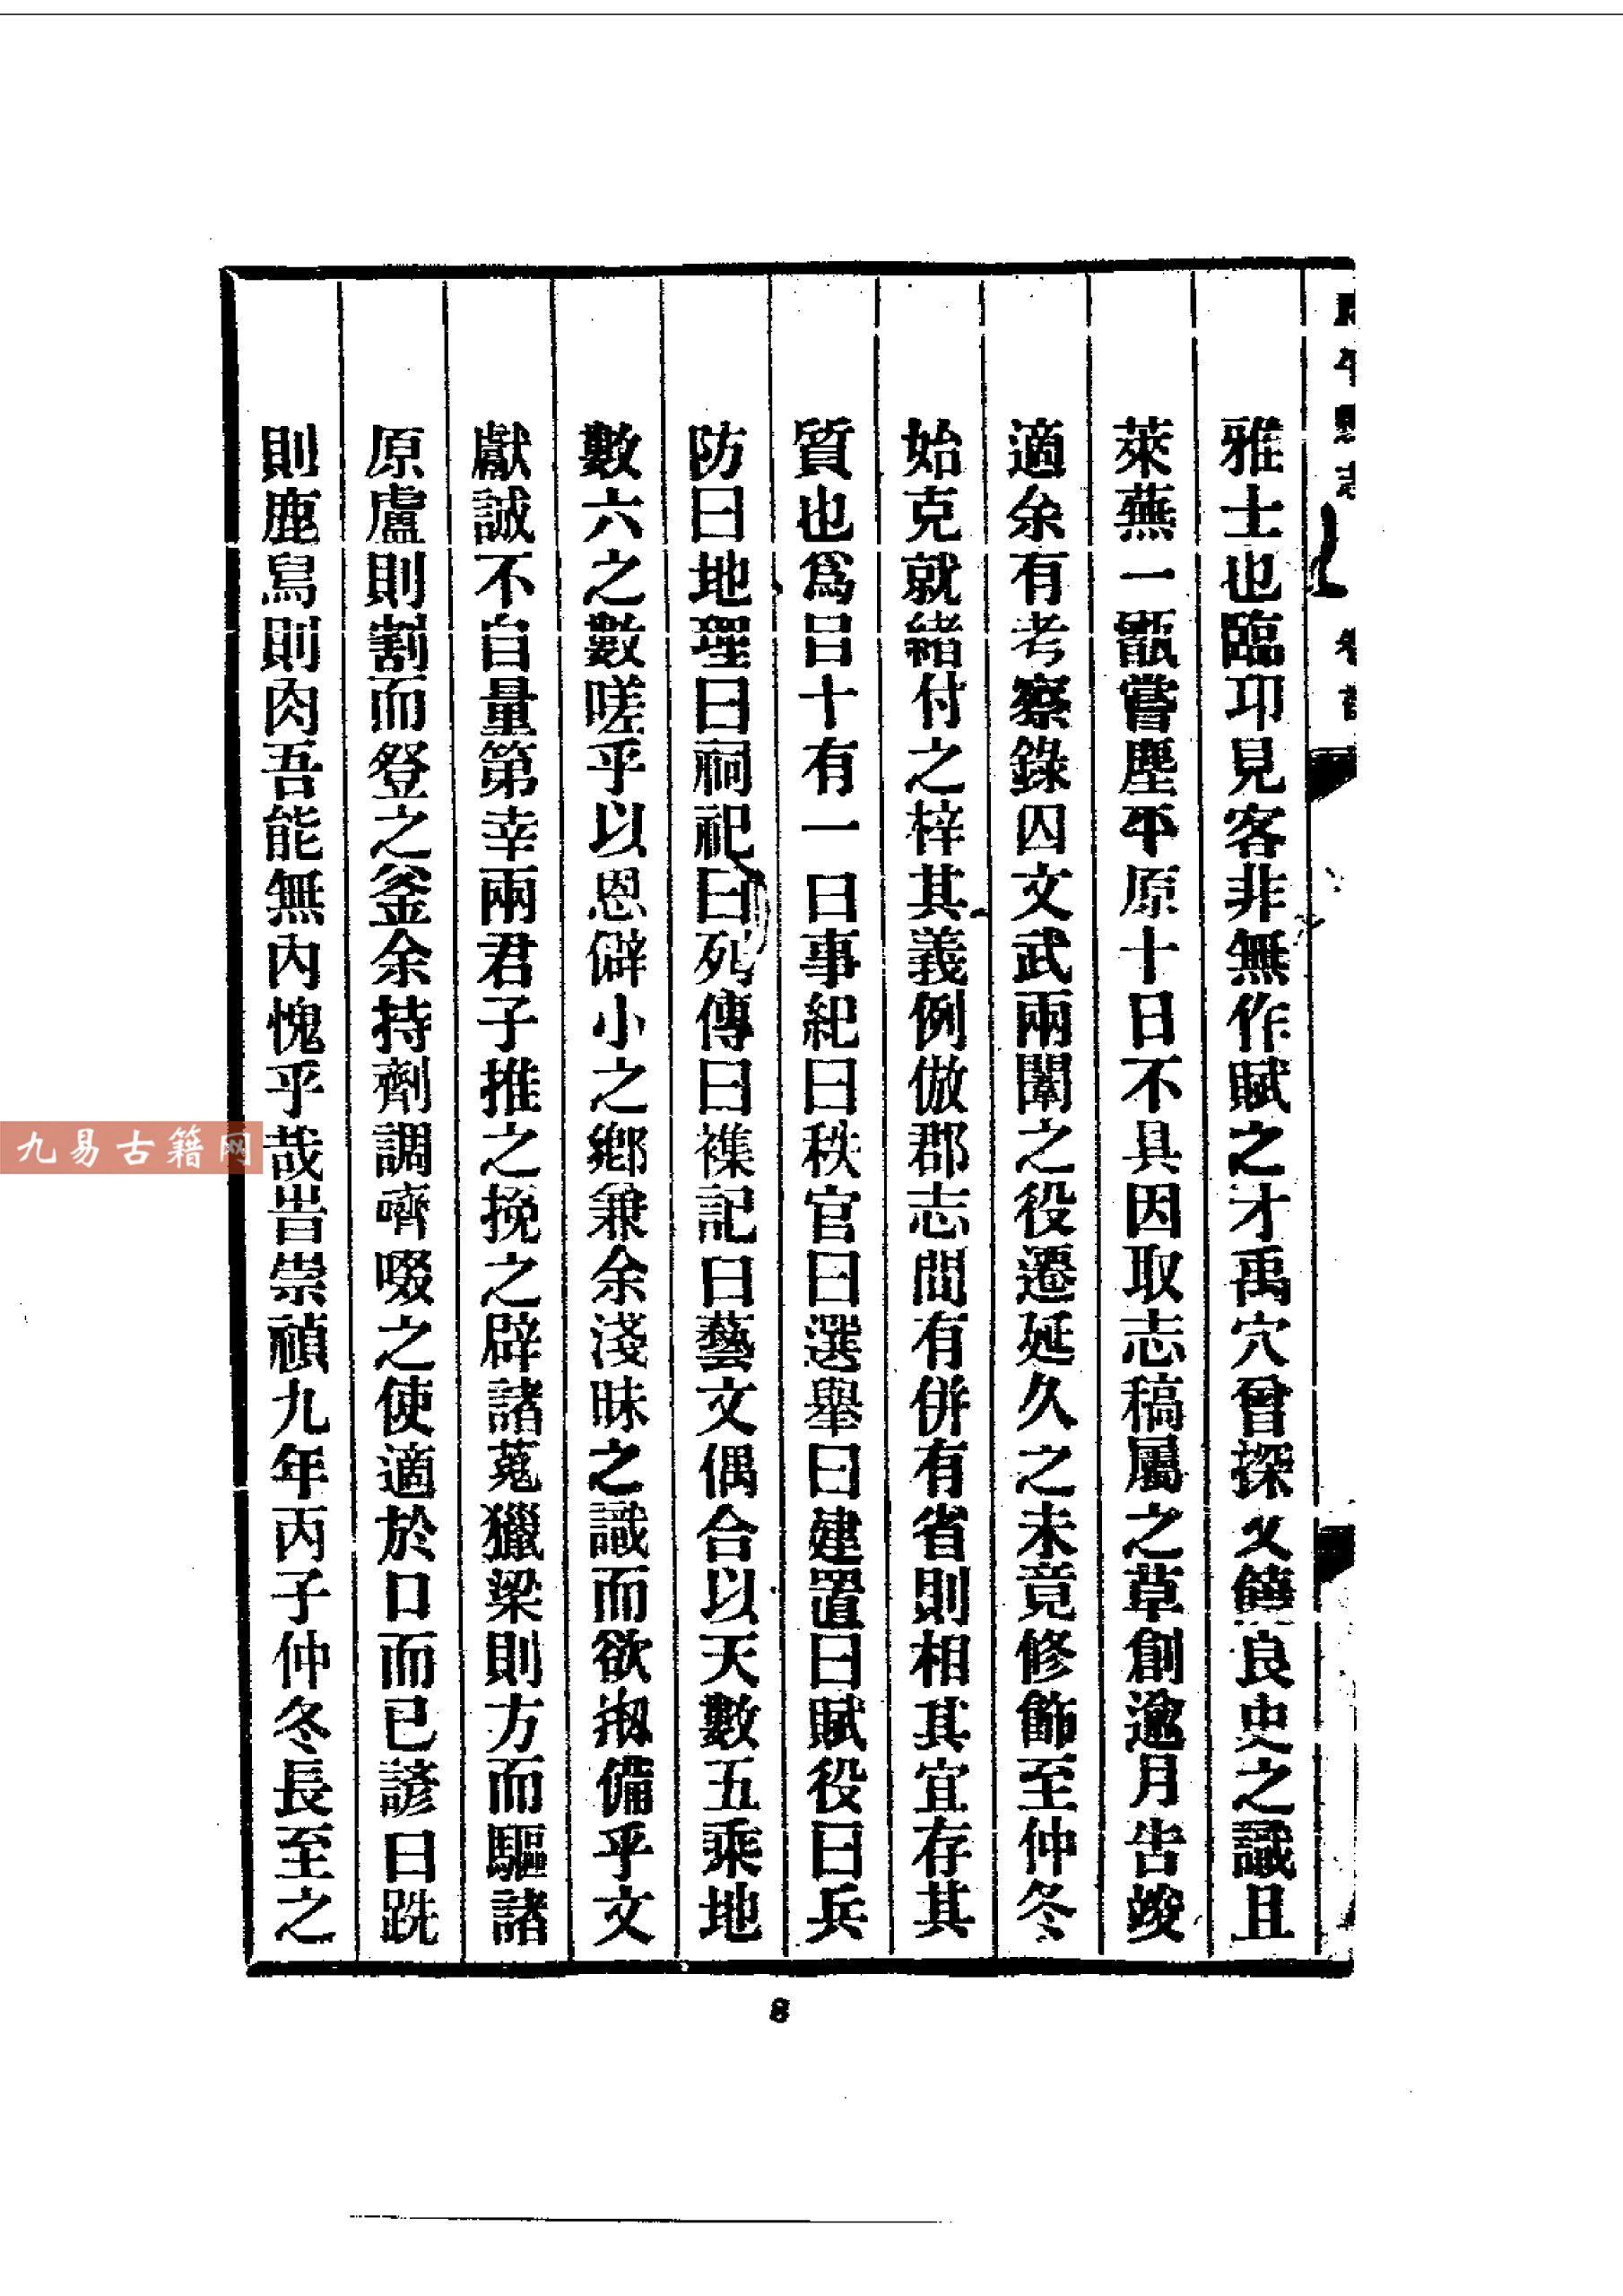 雅士也臨邛見客非無作賦之才禹穴曾探又饒良史之識且
萊蕪一甑嘗塵平原十日不具因取志稿屬之草創逾月告竣
適余有考察錄囚文武兩闈之役遷延久之未竟修飾至仲冬
始克就緒付之梓其義例倣郡志間有併有省則相其宜存其
質也爲目十有一曰事紀曰秩官曰選舉曰建置曰賦役曰兵
防曰地理曰祠祀曰列傳曰襍記曰藝文偶合以天數五乘地
數六之數嗟乎以恩僻小之鄉兼余淺昧之識而欲備乎文
獻誠不自量第幸兩君子推之挽之辟諸蒐獵梁則方而驅諸
原盧則割而登之釜余持劑調嚌啜之使適於口而已諺曰跣
則鹿舄則肉吾能無內愧乎哉旹崇禎九年丙子仲冬長至之
縣志
8
九易古籍网